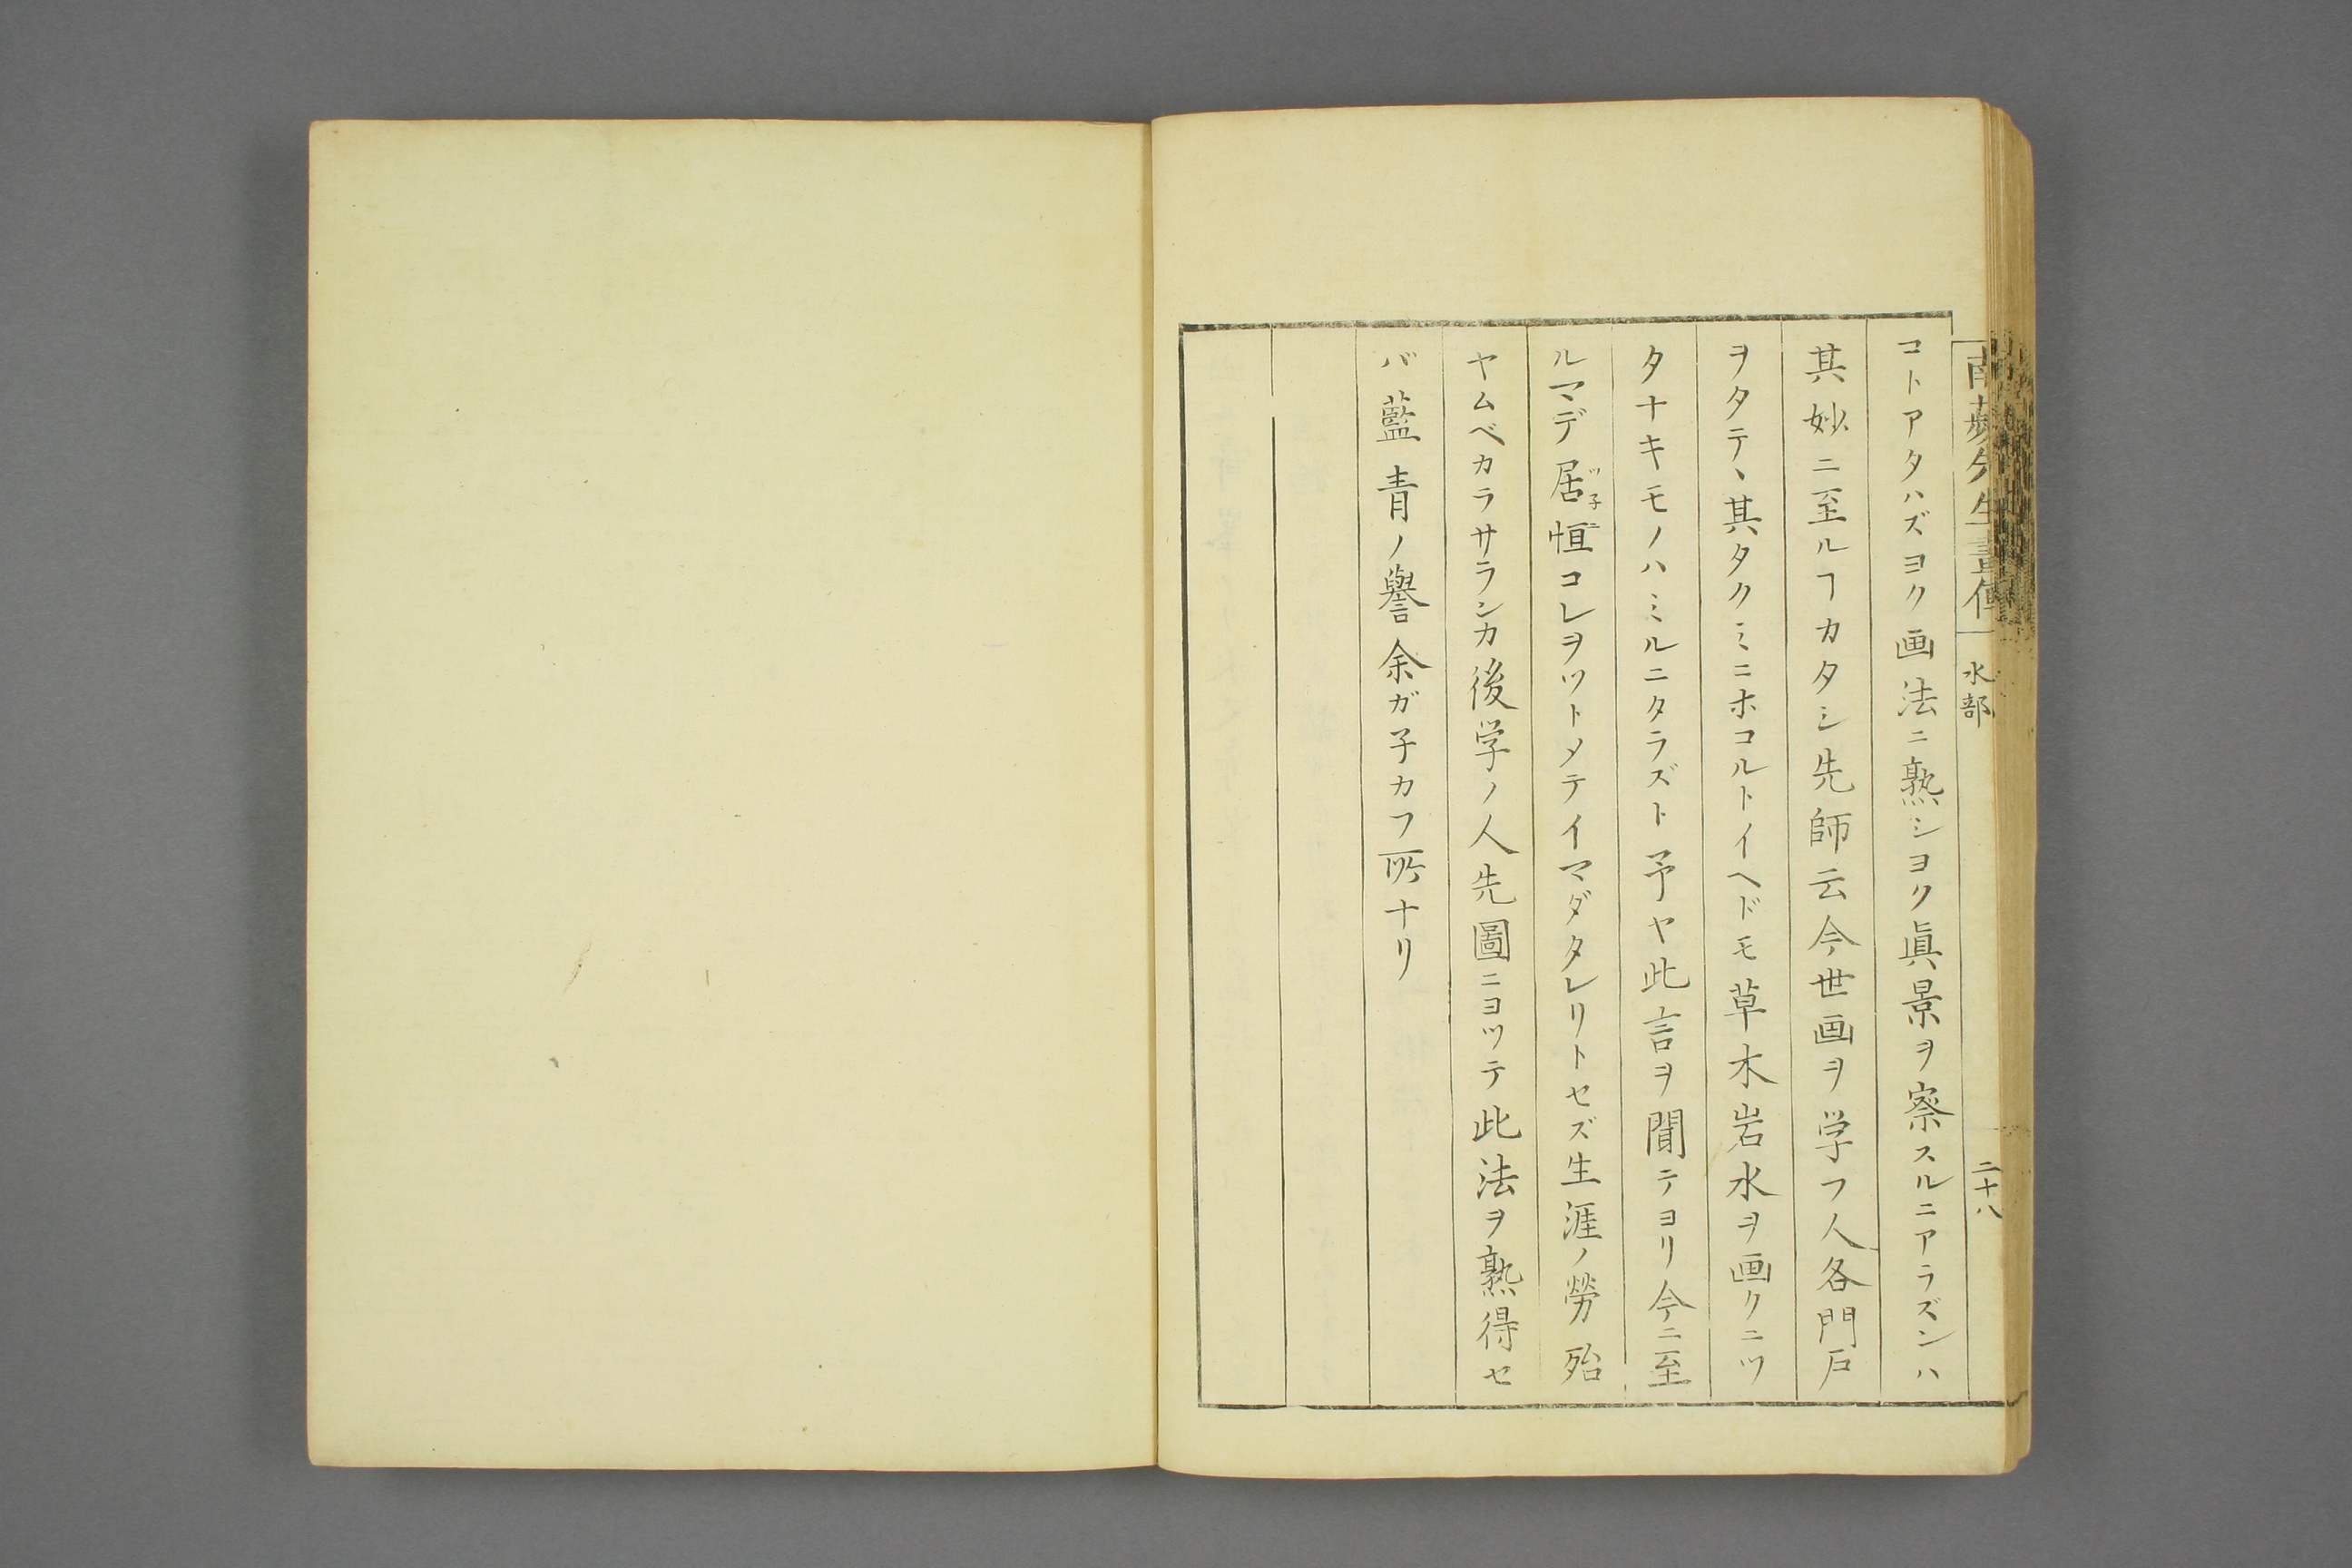 南蘋先生畫傳
水部
二十八
コトアタハズヨク画法ニ熟シヨク眞景ヲ察スルニアラズンハ
其妙ニ至ルヿカタシ先師云今世画ヲ学フ人各門戸
ヲタテヽ其タクミニホコルトイヘドモ草木岩水ヲ画クニツ
タナキモノハミルニタラズト予ヤ此言ヲ聞テヨリ今ニ至
ルマデ居恒コレヲツトメテイマダタレリトセズ生涯ノ勞殆
ツ子ニ
ヤムベカラサランカ後学ノ人先圖ニヨツテ此法ヲ熟得セ
バ藍青ノ譽余ガ子カフ所ナリ